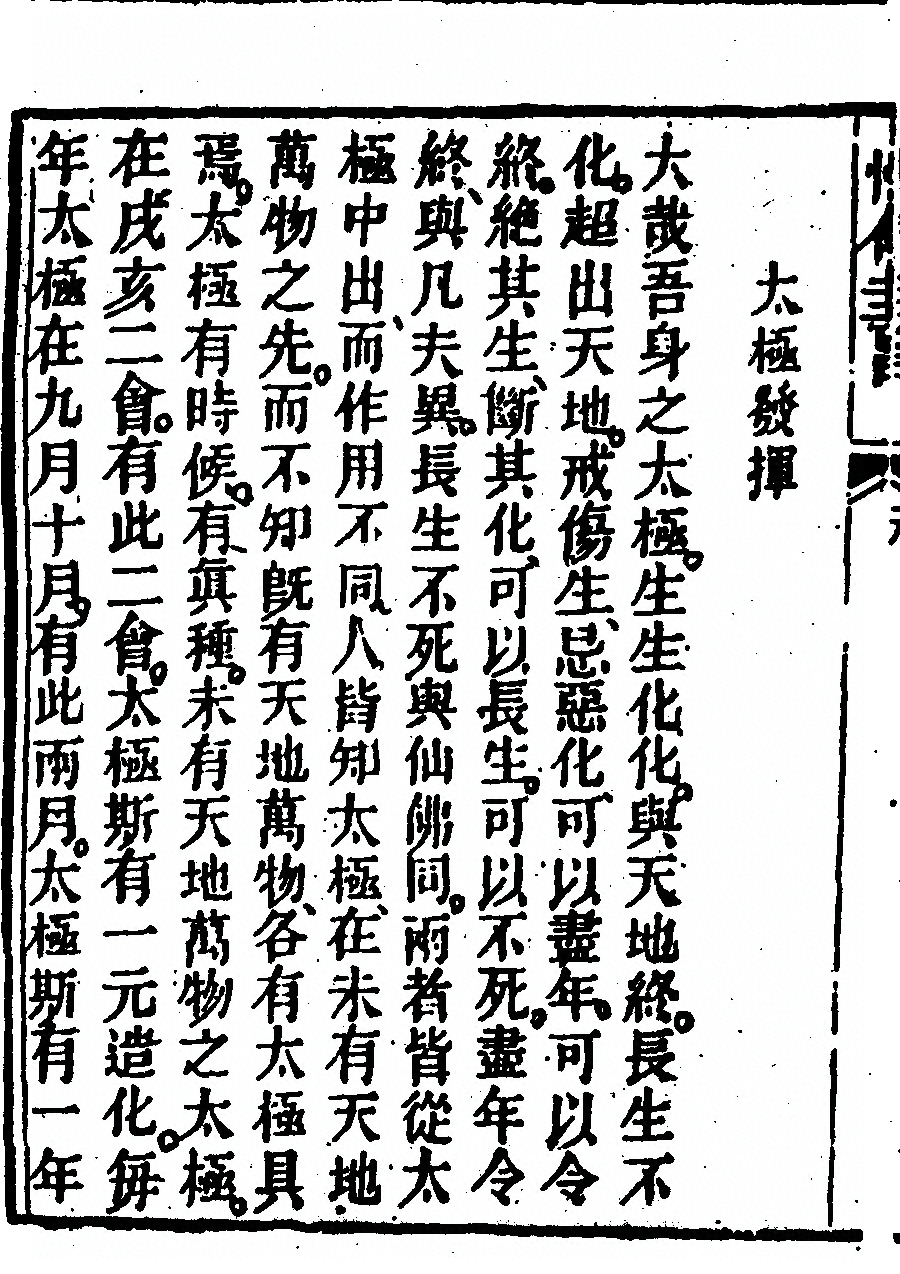 太極發揮
大哉吾身之太極。生生化化。與天地終。長生不
化。超出天地。戒傷生、忌惡化、可以盡年。可以令
終。絶其生、斷其化、可以長生。可以不死。盡年令
終、與凡夫異。長生不死與仙佛同。兩者皆從太
極中出、而作用不同、人皆知太極、在未有天地
萬物之先。而不知旣有天地萬物、各有太極具
焉。太極有時候。有眞種。未有天地萬物之太極。
在戌亥二會。有此二會。太極斯有一元造化。每
年太極在九月十月。有此兩月。太極斯有一年